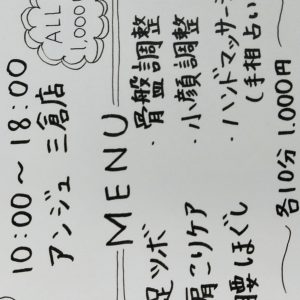 ALL
1,000
10:00～18:00
アンジュ 三倉店
MENU
足ツボ ・骨盤調整
肩こりケア ・小顔調整
腰ほぐし ・ハンドマッサー
(手相占い
各10分 1.000円